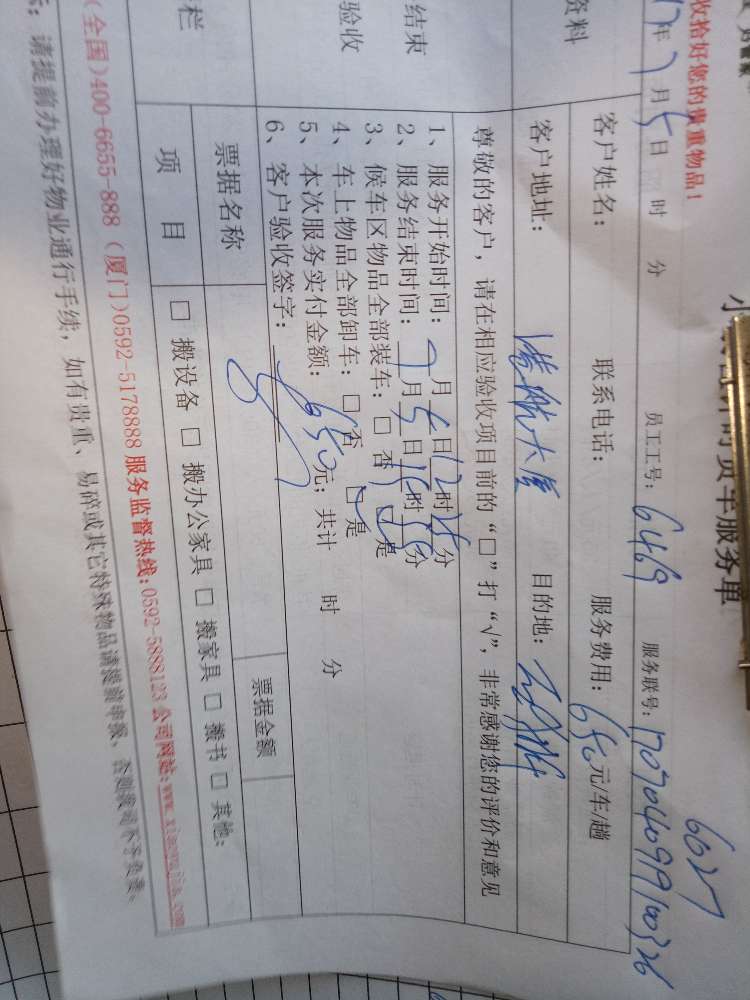 收拾好您的贵重物品!
货车服务单
6027
17年7月5日 时 分 员工工号: 6469 服务联号: 170704099100326
资料
客户姓名: 联系电话: 服务费用: 650元/车/趟
客户地址: 港航大厦 目的地:
尊敬的客户,请在相应验收项目前的“□”打“√”,非常感谢您的评价和意见
结束
验收
1、服务开始时间: 7月 日12时 分
2、服务结束时间: 月5日 时 分
3、候车区物品全部装车: □ 否 □ 是
4、车上物品全部卸车: □ 否 □ 是
5、本次服务实付金额: 650元; 共计 时 分
6、客户验收签字:
栏
票据名称 票据金额
项 目 □ 搬设备 □ 搬办公家具 □ 搬家具 □ 搬书 □ 其他:
(全国)400-6655-888 (厦门)0592-5178888 服务监督热线:0592-5888123 公司网站:www.xiaowujia.com
请提前办理好物业通行手续, 如有贵重、易碎或其它特殊物品请提前申报, 否则我司不予负责。